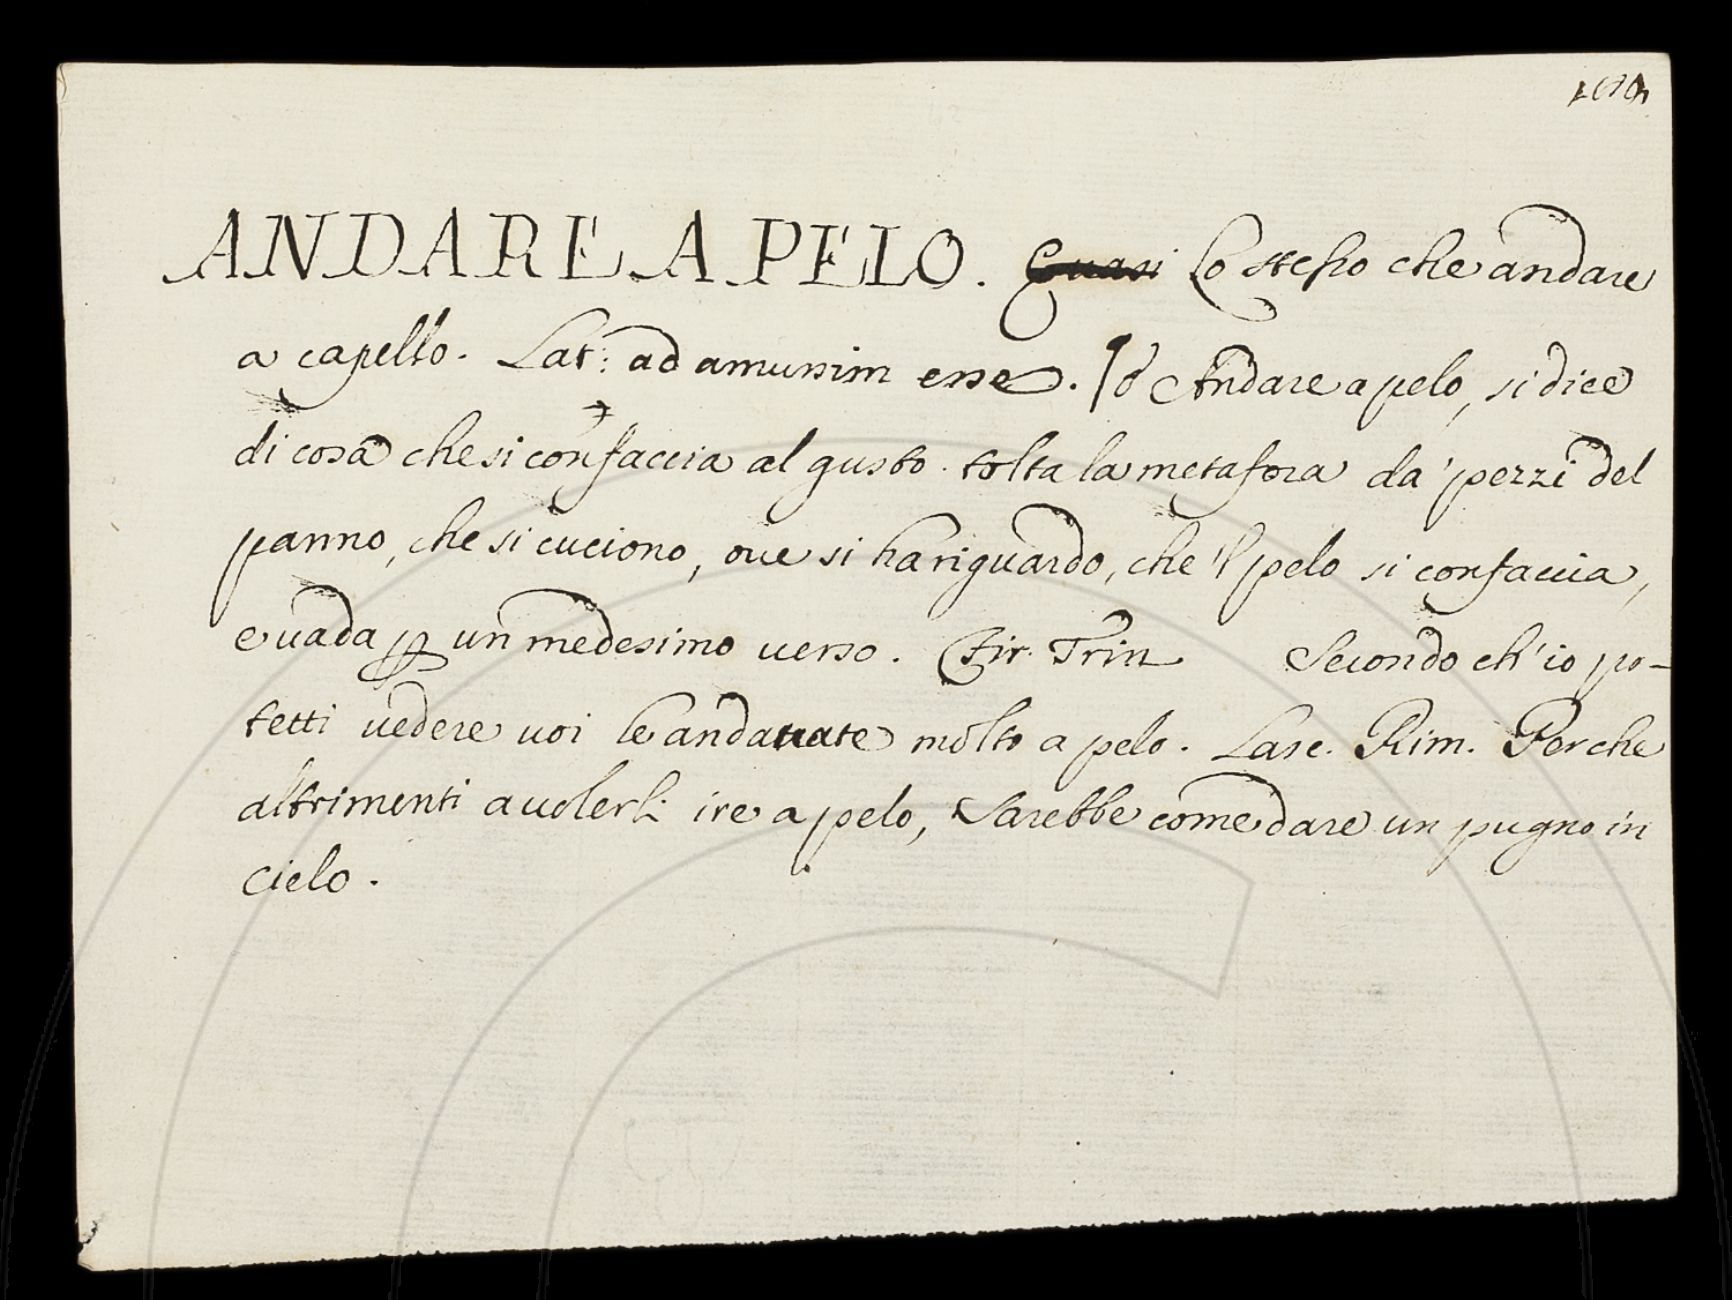 ANDARE A PELO. Quasi Lo stesso che andare
a capello. Lat: ad amussim esse. Andare a pelo, si dice
di cosa che si confaccia al gusto. tolta la metafora da' pezzi del
panno, che si cuciono, oue si ha riguardo, che 'l pelo si confaccia,
e uada p un medesimo uerso. Fir. Trin Secondo ch' io po-
tetti uedere uoi le andauate molto a pelo. Lasc. Rim. Perche
altrimenti a volerli ire a pelo, Sarebbe come dare un pugno in
cielo.